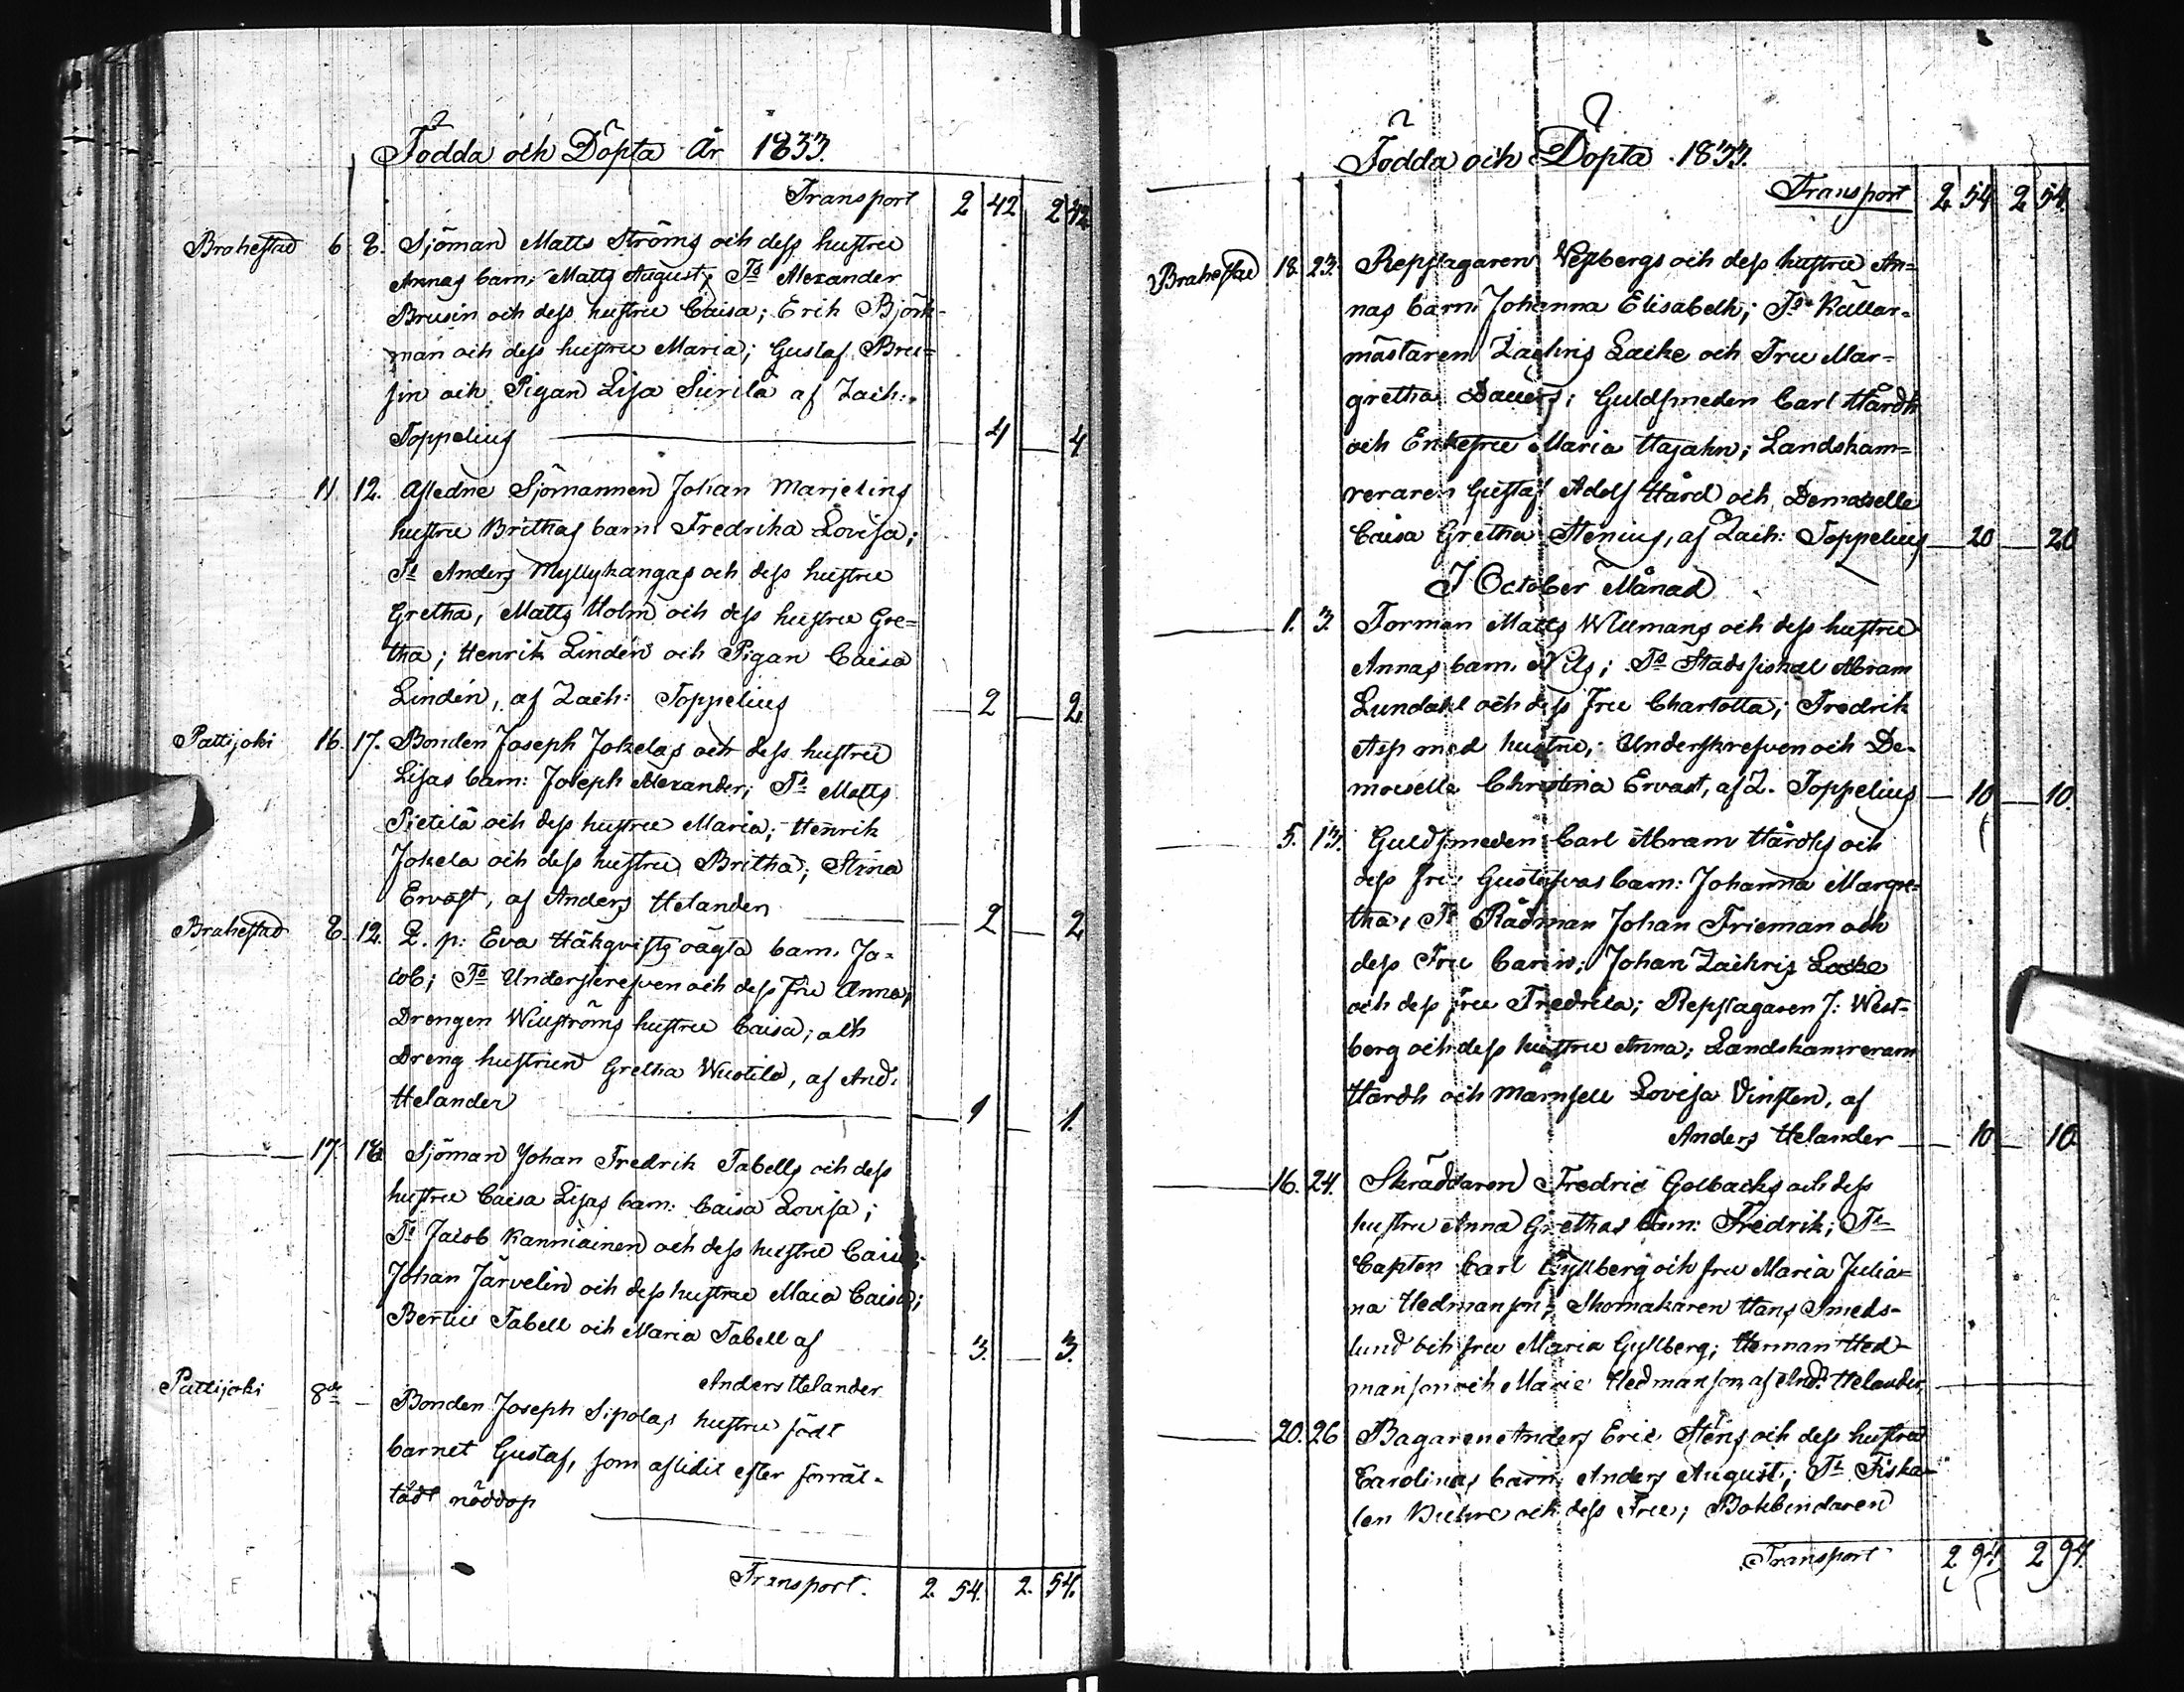 Födda och Döpta År 1833.
Transport 2 42 2 42
Brahestad 6 8. Sjöman Matts Ströms och dess hustru
Annas barn, Matts August; Ts Alexander
Brusin och dess hustru Caisa; Erik Björk-
man och dess hustru Maria; Gustaf Bru=
sin och Pigan Lisa Siirilä af Zach:
Toppelius 4 4
11. 12. Afledne Sjömannen Johan Marjelins
hustru Brithas barn Fredrika Lovisa;
Ts Anders Myllykangas och dess hustru
Gretha, Matts Holm och dess hustru Gre=
tha; Henrik Lindén och Pigan Caisa
Lindén, af Zach: Toppelius 2 2
Pattijoki 16. 17. Bonden Joseph Jokelas och dess hustru
Lisas barn: Joseph Alexander; Ts Matts
Pietilä och dess hustru Maria; Henrik
Jokela och dess hustru Britha; Stina
Ervast, af Anders Helander 2 2
Brahestad 8. 12. Q. p: Eva Häkqvists oägta barn. Ja=
cob; Ts Underskrefven och dess Fru Anna;
Drengen Wikströms hustru Caisa; och
Dreng hustrun Gretha af And.
Helander 1 1.
17. 18 Sjöman Johan Fredrik Tabells och dess
hustru Caisa Lisas barn: Caisa Lovisa;
Ts Jacob Kanniainen och dess hustru Caisa;
Johan Järvelin och dess hustru Maia Caisa;
Bertil Tabell och Maria Tabell af 3. 3.
Anders Helander
Pattijoki 8de Bonden Joseph Sipolas hustru födt
barnet Gustaf, som aflidit efter förrät-
tädt nöddop
Transport. 2. 54. 2. 54.
Födda och Döpta 1833.
Transport 2 54 2 54.
Brahestad 18. 23. Repslagaren Westbergs och dess hustru An=
nas barn Johanna Elisabeth; Ts Källar=
mästaren Zachris Lacke och Fru Mar=
gretha Guldsmeden Carl Hårdh
och Enkefru Maria Hajahn; Landskam=
reraren Gustaf Adolf Hård och Demoiselle
Caisa Gretha Stenius, af Zach: Toppelius 20 20
I October Månad
1. 3. Forman Matts och dess hustru
Annas barn. Nils; Ts Stadsfiskal Abram
Lundahl och dess fru Charlotta; Fredrik
Asp med hustru; Underskrefven och De-
moiselle Christina Ervast, af Z. Toppelius 10 10.
5. 13. Guldsmeden Carl Abram Hårdhs och
dess fru Gustafvas barn: Johanna Margre=
tha, Ts Rådman Johan Frieman och
dess Fru Carin; Johan Zachris Lacke
och dess fru Fredrica; Repslagaren J: West-
berg och dess hustru Anna; Landskamreraren
Hårdh och Mamsell Lovisa Vinsten, af
Anders Helander 10 10
16. 24. Skräddaren Fredric Golbacks och dess
hustru Anna Grethas barn: Fredrik; Ts
Capten Carl Gyllberg och fru Maria Julia=
na Hedmanson; Skomakaren Hans Smeds-
lund och fru Maria Gyllberg; Herman Hed-
manson och Marie Hedmanson, af And. Helander
20. 26 Bagaren Anders Eric Stens och dess hustru
Carolinas barn Anders August; Ts Fiska-
len och dess Fru; Bokbindaren
Transport 2 94. 2 94.